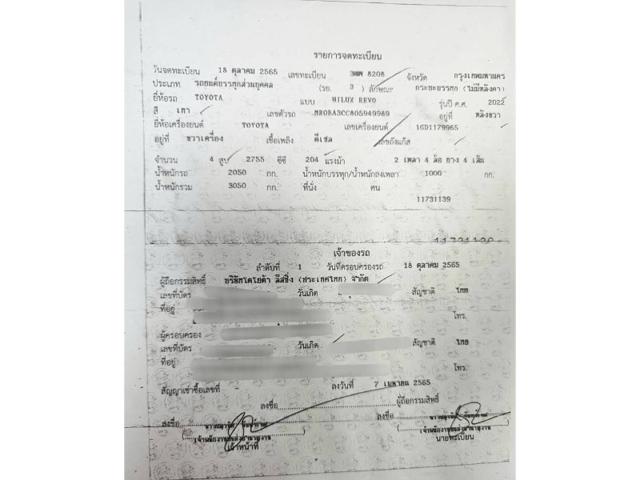 รายการจดทะเบียน
วันจดทะเบียน 18 ตุลาคม 2565 เลขทะเบียน 3ฒฬ 8208 จังหวัด กรุงเทพมหานคร
ประเภท รถยนต์บรรทุกส่วนบุคคล (รย. 3 ) ลักษณะ กระบะบรรทุก (ไม่มีหลังคา)
ยี่ห้อรถ TOYOTA แบบ HILUX REVO รุ่นปี ค.ศ. 2022
สี เทา เลขตัวรถ MR0BA3CC805949989 อยู่ที่ หลังขวา
ยี่ห้อเครื่องยนต์ TOYOTA เลขเครื่องยนต์ 1GD1179965
อยู่ที่ ขวาเครื่อง เชื้อเพลิง ดีเซล เลขถังแก๊ส
จำนวน 4 สูบ 2755 ซีซี 204 แรงม้า 2 เพลา 4 ล้อ ยาง 4 เส้น
น้ำหนักรถ 2050 กก. น้ำหนักบรรทุก/น้ำหนักลงเพลา 1000 กก.
น้ำหนักรวม 3050 กก. ที่นั่ง คน
11731139
เจ้าของรถ
ลำดับที่ 1 วันที่ครอบครองรถ 18 ตุลาคม 2565
ผู้ถือกรรมสิทธิ์ บริษัทโตโยต้า ลีสซิ่ง (ประเทศไทย) จำกัด
เลขที่บัตร วันเกิด สัญชาติ ไทย
ที่อยู่
โทร.
ผู้ครอบครอง
เลขที่บัตร วันเกิด สัญชาติ ไทย
ที่อยู่
โทร.
สัญญาเช่าซื้อเลขที่ ลงวันที่ 7 เมษายน 2565
ลงชื่อ ผู้ถือกรรมสิทธิ์
ลงชื่อ ลงชื่อ
เจ้าหน้าที่ นายทะเบียน